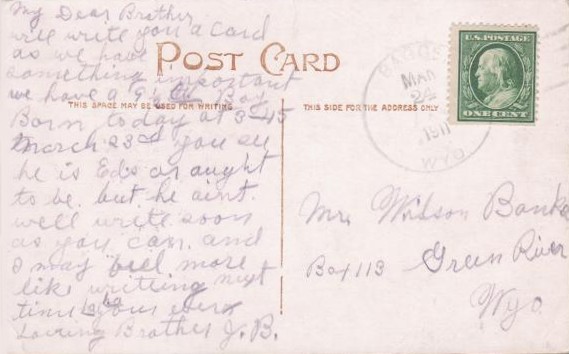 My Dear Brother
will write you a card
as we have
something important
we have a 9½ lb Boy
Born today at 3-45
March 23rd you see
he is Eds or aught
to be. but he aint.
well write soon
as you can and
I may feel more
like writing next
time your ever
Loving Brother J. B.
POST CARD
THIS SPACE MAY BE USED FOR WRITING
THIS SIDE FOR THE ADDRESS ONLY
MAR
24
1911
WYO
U.S. POSTAGE
ONE CENT
Mr. Wilson Banks
Box 113 Green River
Wyo.